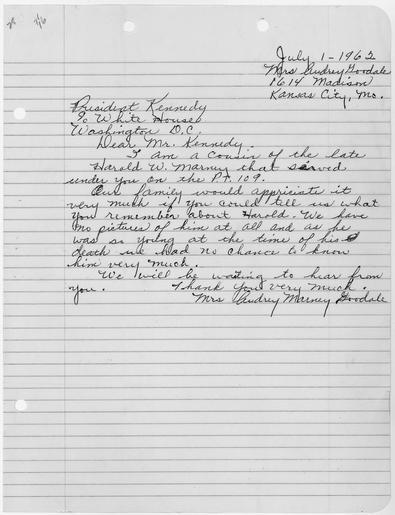 July 1-1962
Mrs Audrey Goodale
1614 Madison
Kansas City, Mo.
President Kennedy
To White House
Washington D.C.
Dear Mr. Kennedy.
I am a cousin of the late
Harold W. Marney that served
under you on the P.T. 109.
Our family would appriciate it
very much if you could tell us what
you remember about Harold. We have
no pictures of him at all and as he
was so young at the time of his
death we had no chance to know
him very much.
We will be waiting to hear from
you. Thank you very much.
Mrs Audrey Marney Goodale